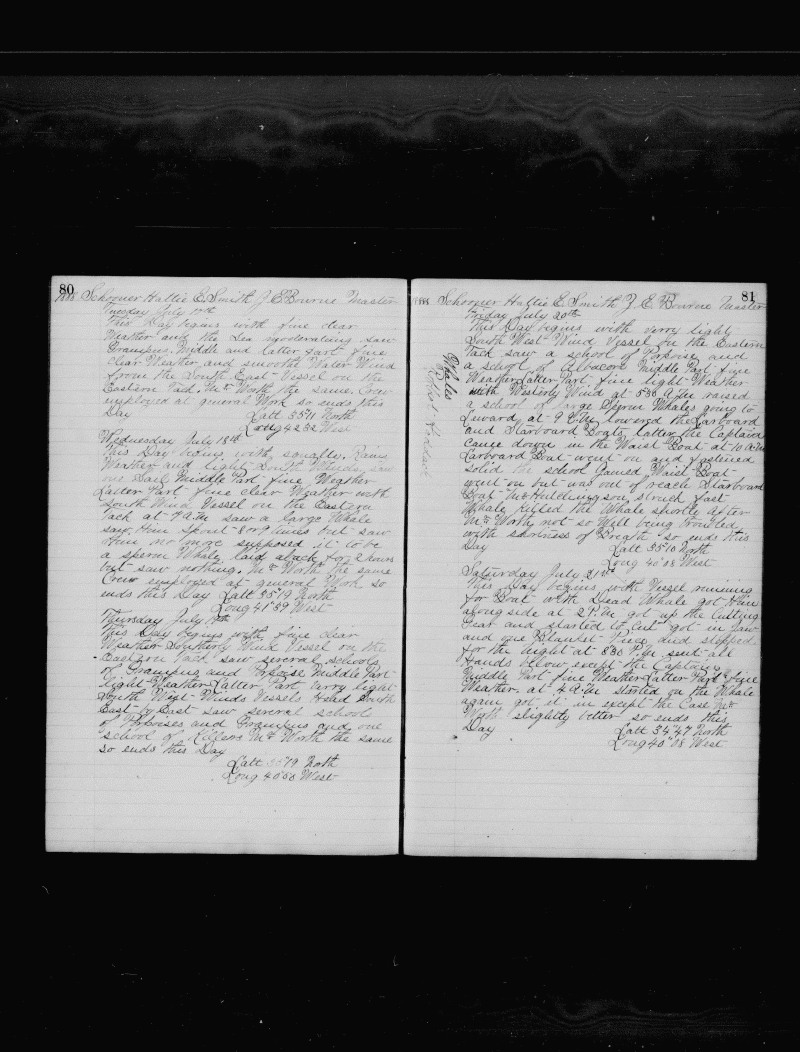 80
1888 Schooner Hattie E. Smith J. E. Bourne Master
Tuesday July 17th
This Day begins with fine clear
Weather and the Sea moderating saw
Grampus, Middle and latter Part fine
clear Weather and smooth Water Wind
from the South East Vessel on the
Eastern Tack. Mr Worth the same. Crew
employed at general Work so ends this
Day Latt 35"11 North
Long 42"32 West
Wednesday July 18th
This Day begins with squally. Rainy
Weather and light South Winds, saw
one Sail Middle Part fine Weather
Latter Part fine clear Weather with
South Wind Vessel on the Eastern
Tack at 9 A.M saw a large Whale
saw Him about 8 or 9 times but saw
Him no more supposed it to be
a sperm Whale laid aback for 2 hours
but saw nothing. Mr Worth the same
Crew employed at general Work so
ends this Day Latt 35"19 North
Long 41"39 West
Thursday July 19th
This Day begins with fine clear
Weather Southerly Wind Vessel on the
Eastern Tack saw several schools
of Grampus and Porpoise Middle Part
light Weather Latter Part verry light
South West Winds Vessels Head South
East by East saw several schools
of Porpoises and Grampus and one
school of Killers Mr Worth the same
so ends this Day
Latt 35"19 North
Long 40"50 West
81
1888 Schooner Hattie E. Smith J. E. Bourne Master
Friday July 20th
This Day begins with verry light
South West Wind Vessel on the Eastern
Tack saw a school of Porpoise and
a school of Albacore Middle Part fine
Weather Latter Part fine light Weather
with Westerly Wind at 5 30 A.M raised
a school of large Sperm Whales going to
Leward. at 9 A.M lowered the Larboard
and Starboard Boats, latter the Captain
came down in the Waist Boat at 10 A.M
Larboard Boat went on and fastened
solid the school Gamed Waist Boat
went on but was out of reach Starboard
Boat Mr struck fast
Whale, killed the Whale shortly after
Mr Worth not so Well being troubled
with shortness of Breath so ends this
Day Latt 35"10 North
Long 40"03 West
Whales
Robert
Saturday July 21st
This Day begins with Vessel running
for Boat with Dead Whale got Him
along side at 2 P.M got up the Cutting
Gear and started to Cut got in Jaw
and one Blanket Piece and stopped
for the night at 8 30 P.M sent all
Hands below except the Captain
Middle Part fine Weather Latter Part fine
Weather. at 4 A.M started on the Whale
again got it in except the Case Mr
Worth slightly better so ends this
Day Latt 34"47 North
Long 40"08 West